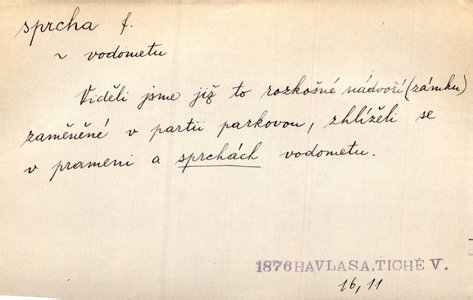 sprcha f.
~ vodometu
Viděli jsme již to rozkošné nádvoří (zámku)
zaměněné v partii parkovou, zhlíželi se
v prameni a sprchách vodometu.
1876 HAVLASA, TICHÉ V.
16, 11